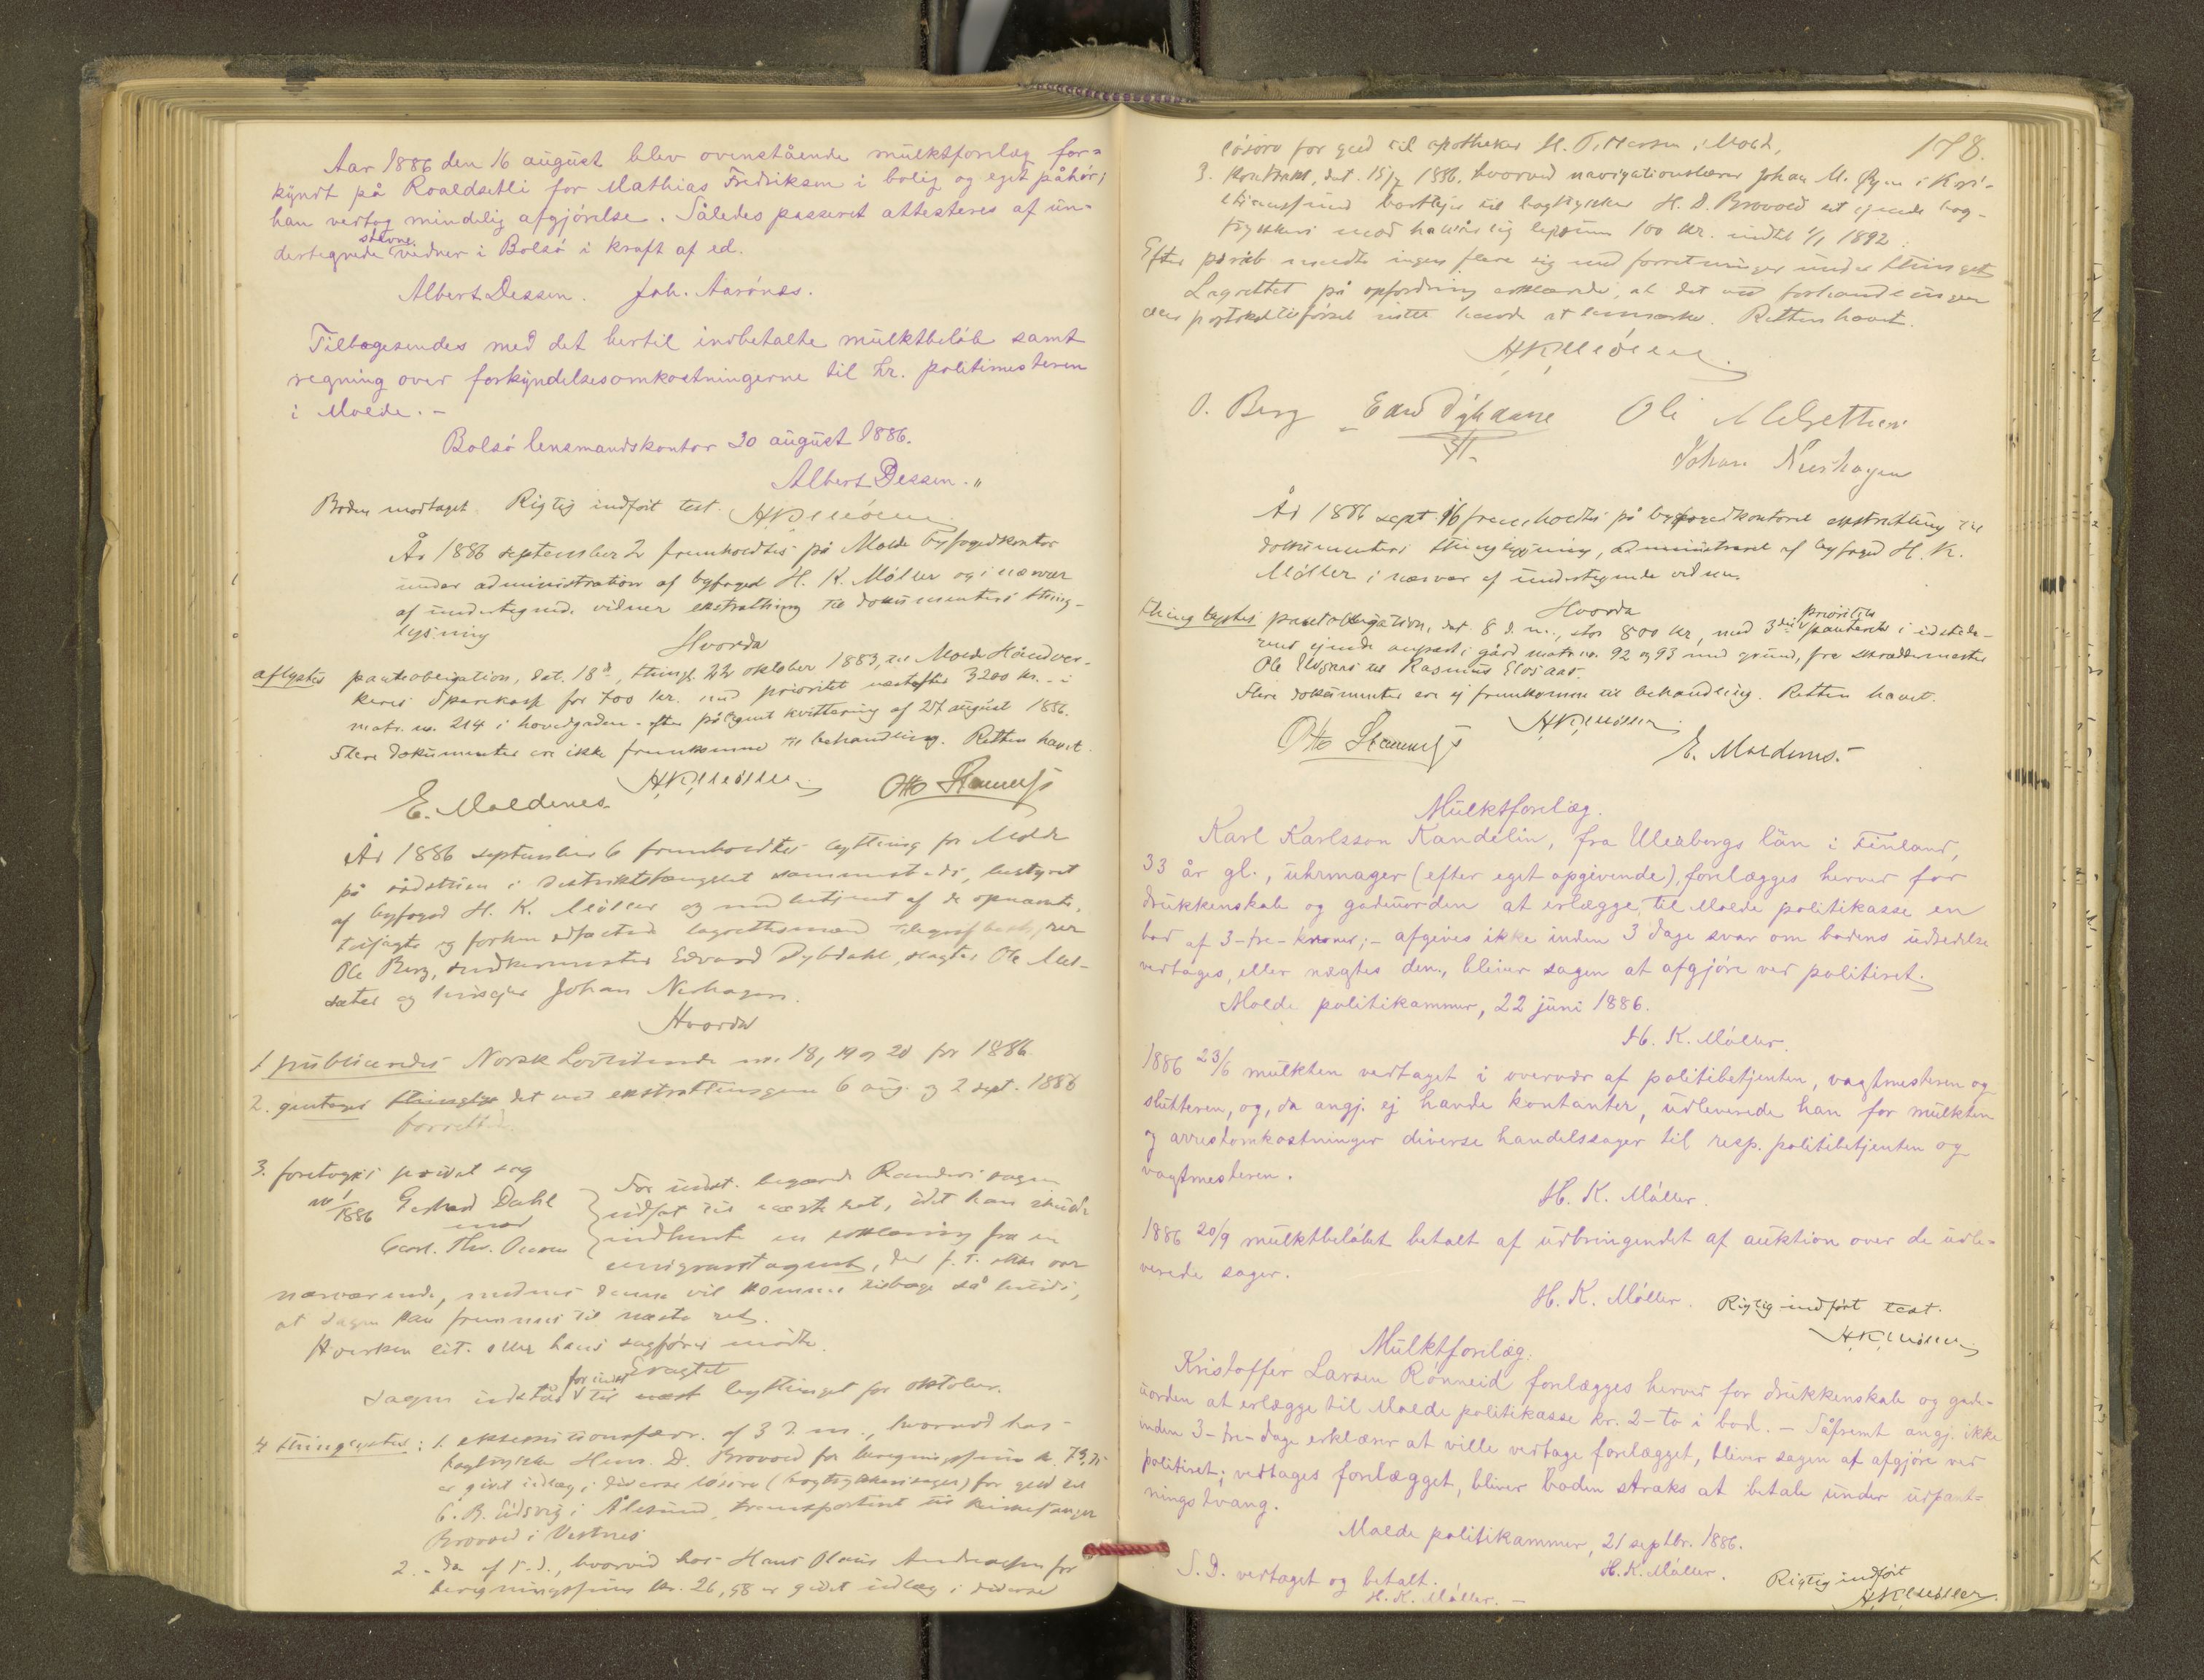 Aar 1886 den 16 august blev ovenstående mulktforelæg for=
kyndt på Roaldsetli for Mathias Fredriksen i bolig og eget påhør;
han vertog mindelig afgjørelse. Således passeret attesteres af un-
dertegnede stevnevidner i Bolsø i kraft af ed.
Albert Dessen. Joh. Aarønes.
Tilbagesendes med det hertil indbetalte mulktbeløb samt
regning over forkyndelsesomkostningerne til Hr. politimesteren
i Molde. -
Bolsø lensmandskontor 30 august 1886.
Albert Dessen. "
Boden modtaget. Rigtig indført test. HKMøller
År 1886 september 2 fremholdtes på Molde byfogedkontor
under administration af byfoged H. K. Møller og i nærvær
af undertegnede vidner ekstrathing til dokumenters thing-
lysning
Hvorda
aflystes panteobligation, dat. 18de, thingl. 22 oktober 1883, til Molde Håndver-
keres Sparekasse for 700 kr. med prioritet næstefter 3200 kr. - i
matr. no. 214 i hovedgaden - efter påtegnet kvittering af 27 august 1886.
Flere dokumenter ere ikke fremkomne til behandling. Retten hævet.
HKMøller
E. Moldenes. Otto
År 1886 september 6 fremholdtes bything for Molde
på rådstuen i distriktsfængslet sammesteds, bestyret
af byfoged H. K. Møller og med betjent af de opnævnte,
tilsagte og forhen edfæstede lagrettesmænd telegrafbestyrer
Ole Berg, snedkermester Edvard Dybdahl, slagter Ole Mel-
sæter og huseier Johan Nerhagen.
Hvorda
1 publiceredes Norsk Lovtidende no. 18, 19 og 20 for 1886
2. gentages thinglys det ved ekstrathingene 6 aug. og 2 sept. 1886
forrettede.
3. foretoges privat sag
no 1/1886 Gerhard Dahl
mod
Carl. Thr.
For indst. begærede Randers sagen
udsat til næste ret, idet han skulde
indhente en erklæring fra en
emigrantagent, der f. t. ikke var
nærværende, medens denne vil komme tilbage så betids,
at sagen kan fremmes til næste ret.
Hverken cit. eller hans sagfører mødte.
Eragtet
Sagen udståes for indst. til næst bythinget for oktober.
4 thinglystes: 1. eksekutionsforr. af 3 d. m., hvorved hos
bogtrykker Hans. D. Brovold for beregningssum kr. 73,75
er givet udlæg i diverse løsøre (bogtrykkerisager) for gæld til
C. B. Eidsvig i Ålesund, transporteret til kirkesanger
Brovold i Vestnes
2. - do af s. d., hvorved hos Hans Olaus Andreassen for
beregningssum kr. 26,58 er givet udlæg i diverse
178.
løsøre for gæld til apotheker H. T. i Molde,
3. Kontrakt, dat. 15/7 1886, hvorved navigationslærer Johan M. Øyen i Kri-
stiansund bortlejer til bogtrykker H. D. Brovold sit ejende bog-
trykkeri mod halvårlig lejesum 100 kr. indtil 1/1 1892.
Efter påråb meldte ingen flere sig med forretninger under thinget
Lagrettet på opfordring erklærede, at det ved forhandlingen
eller protokoltilførsel intet havde at bemærke. Retten hævet.
HKMøller.
O. Berg Edv Dybdahl Ole Melsetter
Johan Nerhagen
År 1886 sept 16 fremholdtes på byfogedkontoret ekstrathing til
dokumenters thinglysning, administreret af byfoged H. K.
Møller i nærvær af undertegnede vidner.
Hvorda
thinglystes panteobligation, dat. 8 d. m., stor 800 kr, med 3die prioritets panteret i udsteder-
ens ejende anpart i gård matr. no. 92 og 93 med grund, fra skræddermester
Ole Elgsaas til Rasmus Elgsaas.
Flere dokumenter ere ej fremkomne til behandling. Retten hævet.
HKMøller.
Otto E. Moldenes.
Mulktforelæg.
Karl Karlsson Kandelin, fra Uleåborgs län i Finland,
33 år gl., uhrmager (efter eget opgivende), forelægges herved for
drukkenskab og gadeuorden at erlægge til Molde politikasse en
bod af 3-tre-kroner; - afgives ikke inden 3 dage svar om bodens udredelse
vertages, eller nægtes den, bliver sagen at afgjøre ved politiret.
Molde politikammer, 22 juni 1886.
H. K. Møller.
1886 23/6 mulkten vertaget i overvær af politibetjenten, vagtmesteren og
slutteren, og, da angj. ej havde kontanter, udleverede han for mulkten
og arrestomkostninger diverse handelssager til resp. politibetjenten og
vagtmesteren.
H. K. Møller.
1886 20/9 mulktbeløbet betalt af udbringendet af auktion over de udle-
verede sager.
H. K. Møller. Rigtig indført test.
HKMøller
Mulktforelæg.
Kristoffer Larsen Rønneid forelægges herved for drukkenskab og gade-
uorden at erlægge til Molde politikasse kr. 2-to i bod. - Såfremt angj. ikke
inden 3-tre-dage erklærer at ville vertage forelægget, bliver sagen at afgjøre ved
politiret; vertages forelægget, bliver boden straks at betale under udpant-
ningstvang.
Molde politikammer, 21 septbr. 1886.
H. K. Møller.
S. D. vertaget og betalt.
H. K. Møller. -
Rigtig indført
HKMøller.